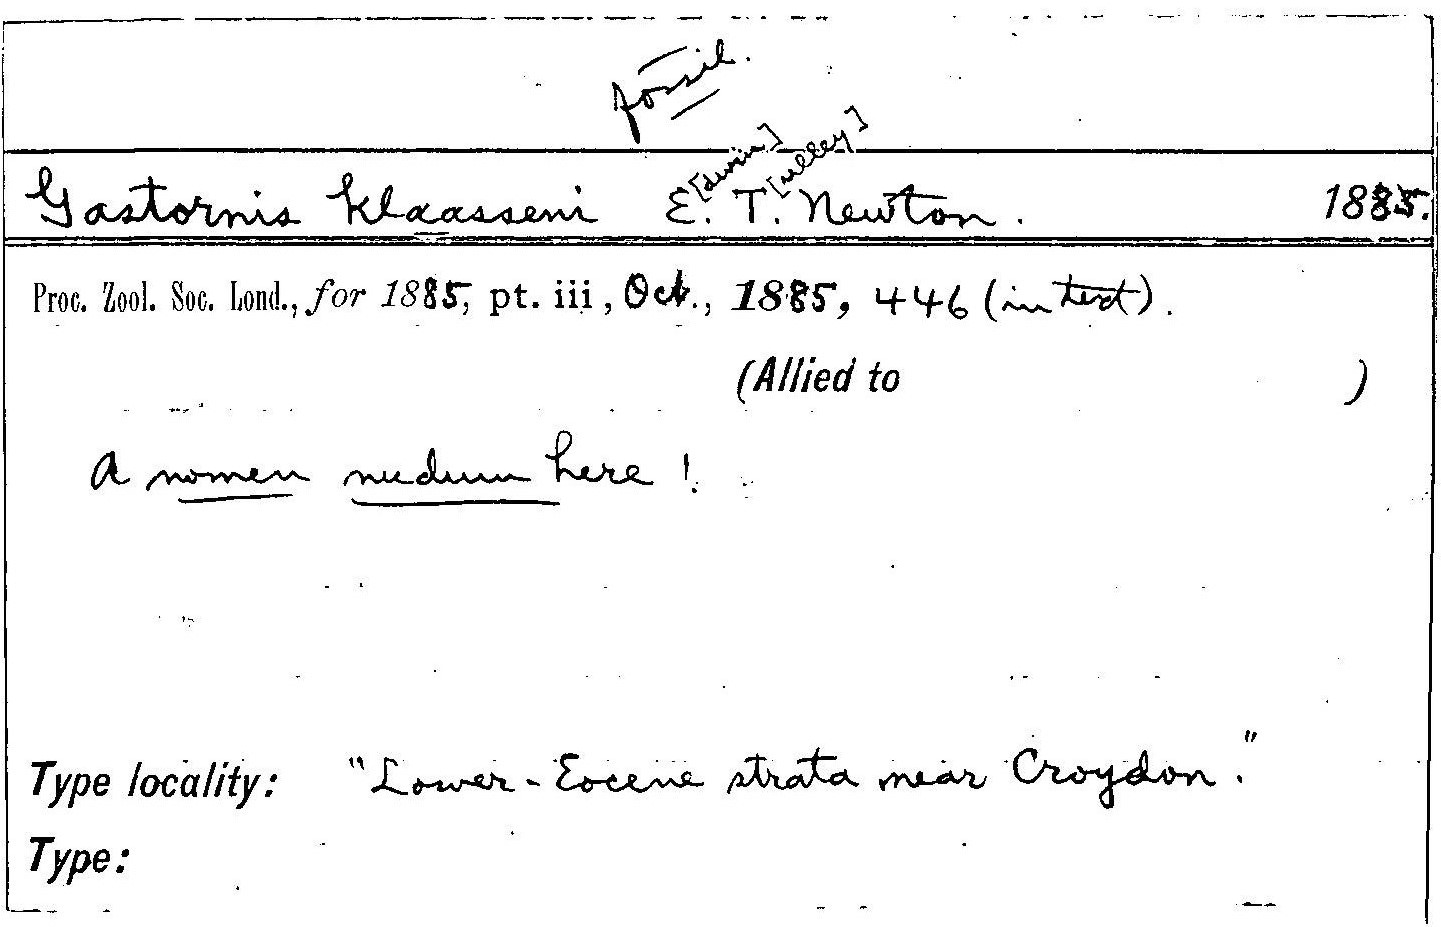 fossil.
Gastornis klaasseni E[dwin]. T[ulley]. Newton. 1885.
Proc. Zool. Soc. Lond., for 1885, pt. iii, Oct., 1885, 446 (in text).
(Allied to )
A nomen nudum here!
Type locality: "Lower-Eocene strata near Croydon."
Type: